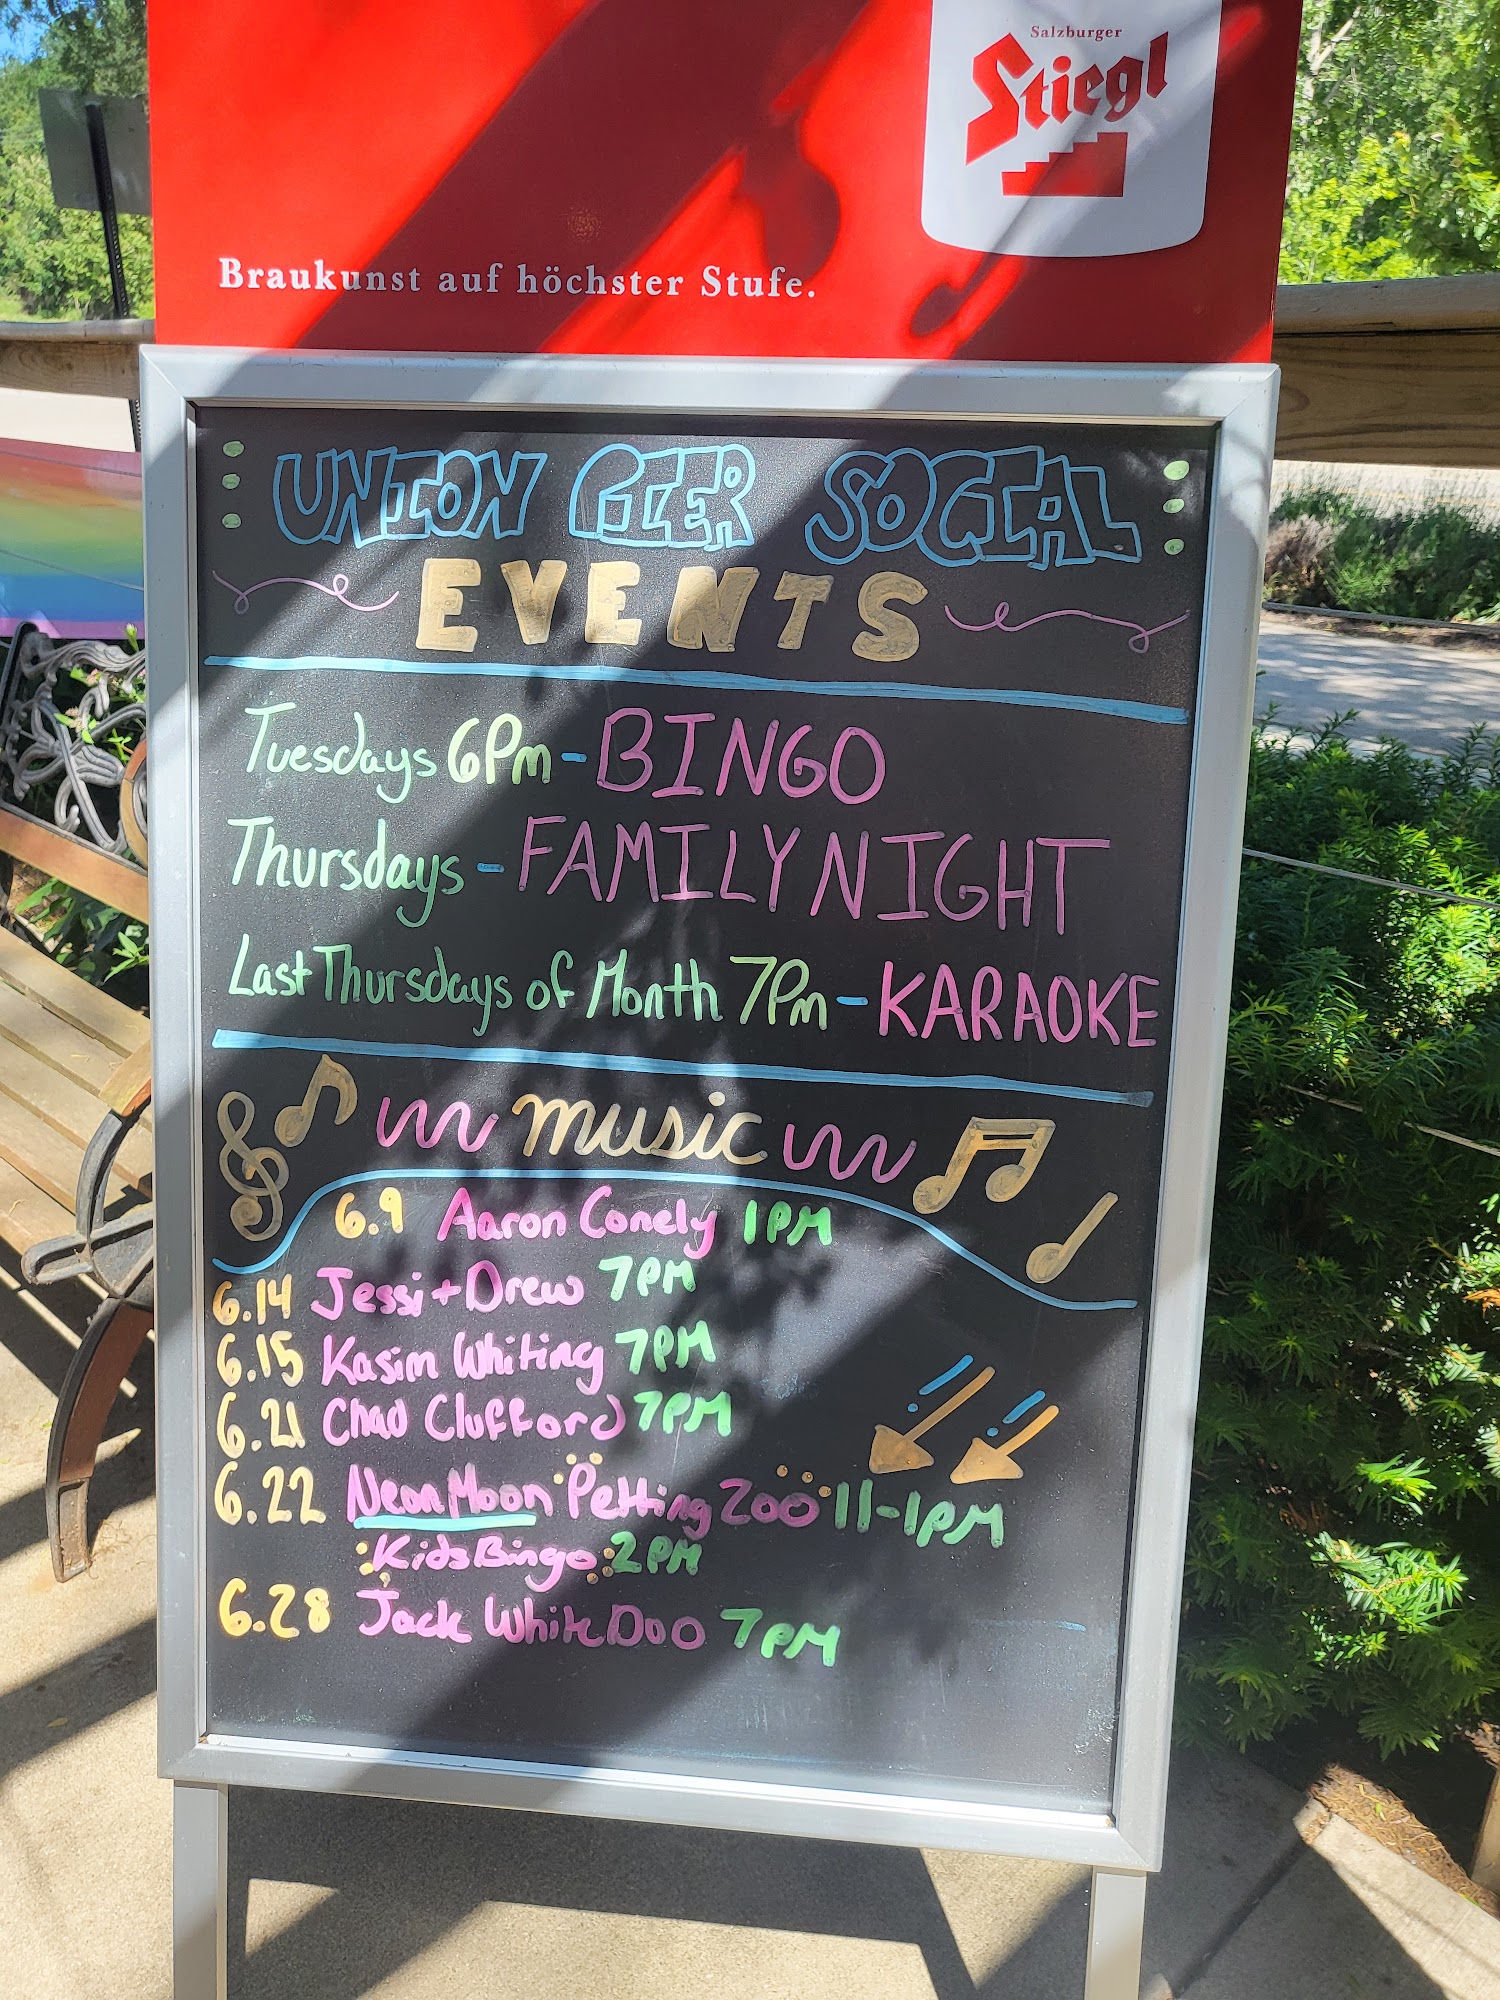 Salzburger
Stiegl
Braukunst auf höchster Stufe.
UNION PIER SOCIAL
EVENTS
Tuesdays 6Pm - BINGO
Thursdays - FAMILY NIGHT
Last Thursdays of Month 7Pm - KARAOKE
music
6.9 Aaron Conely 1PM
6.14 Jessi + Drew 7PM
6.15 Kasim Whiting 7PM
6.21 Chad Clufford 7PM
6.22 Neon Moon Petting Zoo 11-1PM
Kids Bingo 2PM
6.28 Jack White Doo 7PM